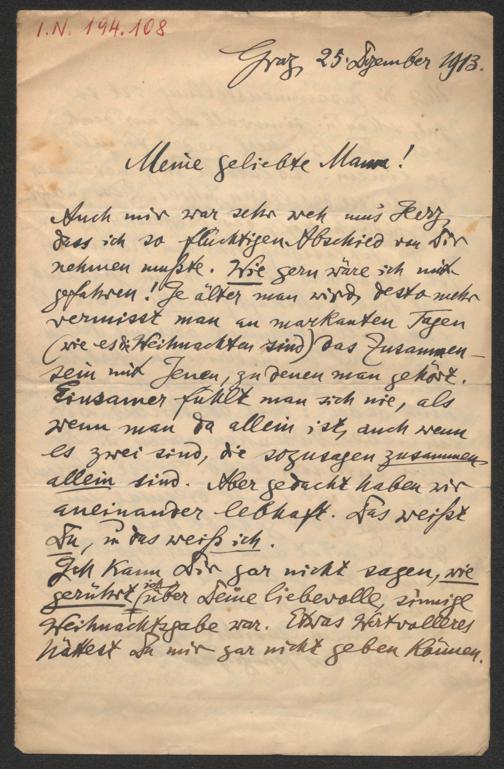 I.N. 194.108
Graz, 25. Dezember 1913.
Meine geliebte Mama!
Auch mir war sehr weh um's Herz,
dass ich so flüchtigen Abschied von Dir
nehmen mußte. Wie gern wäre ich mit-
gefahren! Je älter man wird, desto mehr
vermisst man an markanten Tagen
(wie es die Weihnachten sind) das Zusammen-
sein mit Jenen, zu denen man gehört.
Einsamer fühlt man sich nie, als
wenn man da allein ist, auch wenn
es zwei sind, die sozusagen zusammen
allein sind. Aber gedacht haben wir
aneinander lebhaft. Das weißt
Du, u das weiß ich.
Ich kann Dir gar nicht sagen, wie
gerührt ich über Deine liebevolle, sinnige
Weihnachtsgabe war. Etwas Wertvolleres
hättest Du mir gar nicht geben können.